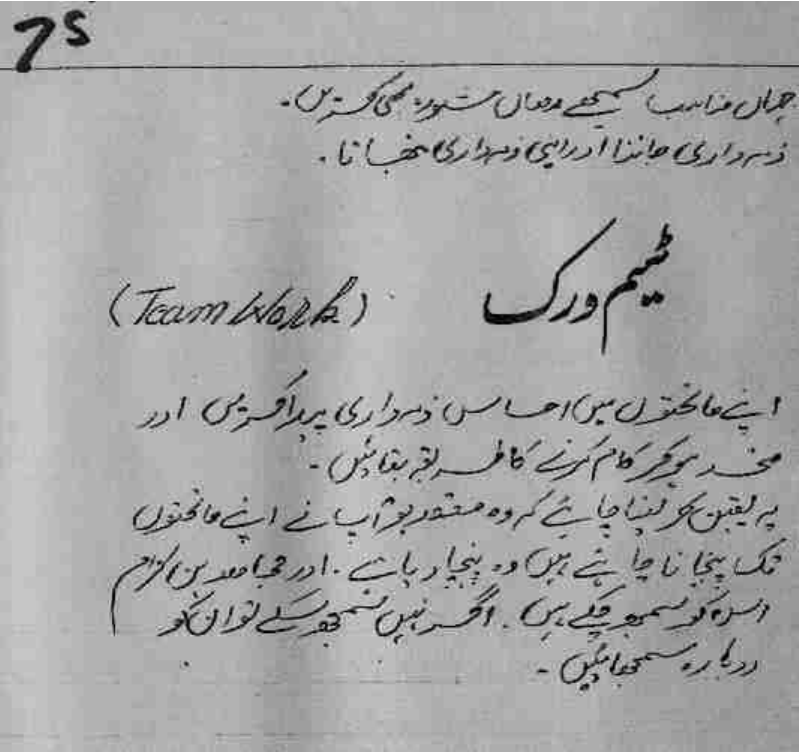 75
جہاں مناسب سمجھے وہاں مشورہ بھی کریں۔
ذمہ داری جاننا اور اپنی ذمہ داری نبھانا۔
ٹیم ورک (Team Work)
اپنے ماتحتوں میں احساس ذمہ داری پیدا کریں اور
متحد ہو کر کام کرنے کا طریقہ بتائیں۔
یہ یقین کر لینا چاہئے کہ وہ مقصد جو آپ نے اپنے ماتحتوں
تک پہنچانا چاہتے ہیں وہ پہنچا دیا ہے۔ اور مجاہدین کرام
اس کو سمجھ چکے ہیں۔ اگر نہیں سمجھ سکے تو ان کو
دوبارہ سمجھائیں۔